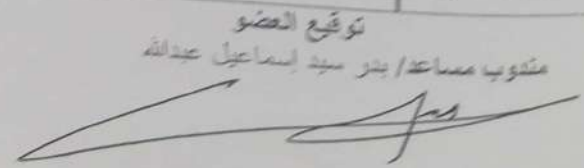 توقيع العضو
مندوب مساعد/ بدر سيد إسماعيل عبدالله